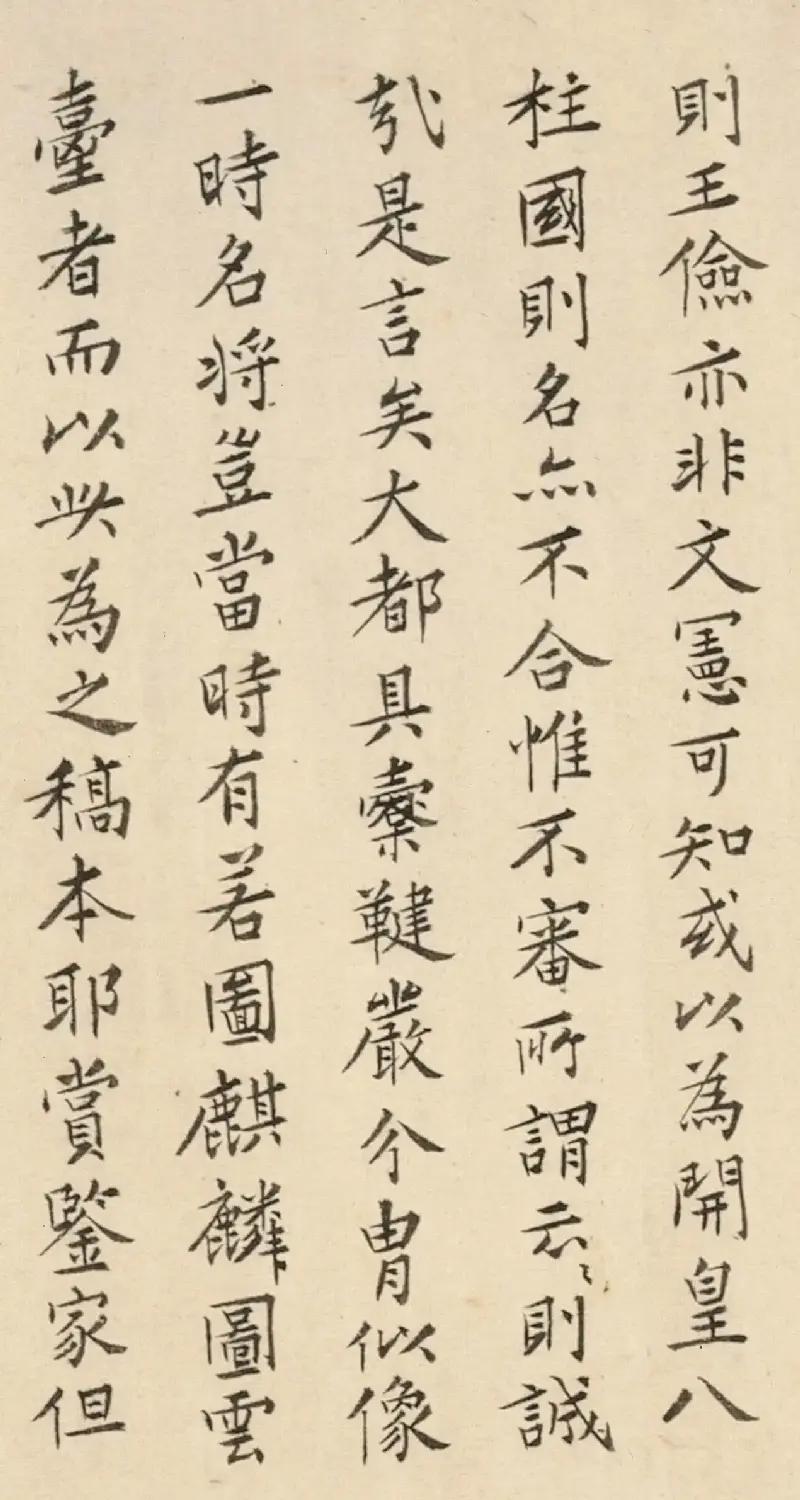 則王儉亦非文憲可知或以為開皇八
柱國則名亦不合惟不審所謂云云則誠
哉是言矣大都具櫜鞬嚴介冑似像
一時名将豈當時有若圖麒麟圖雲
臺者而以此為之稿本耶賞鑒家但